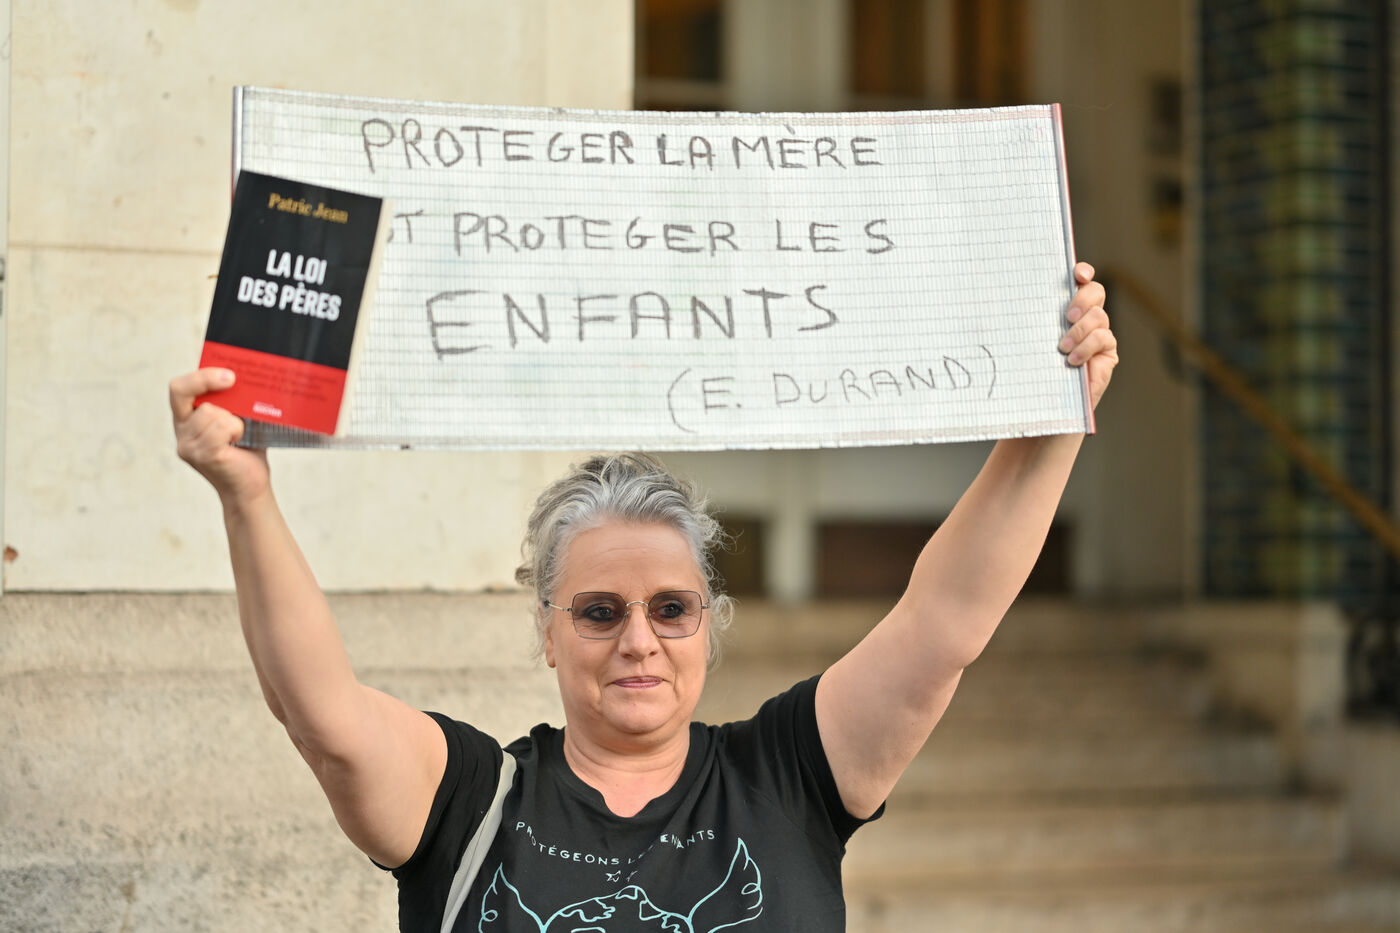 PROTEGER LA MÈRE
ST PROTEGER LES
ENFANTS
(E. DURAND)
Patric Jean
LA LOI
DES PÈRES
PROTÉGEONS LES ENFANTS